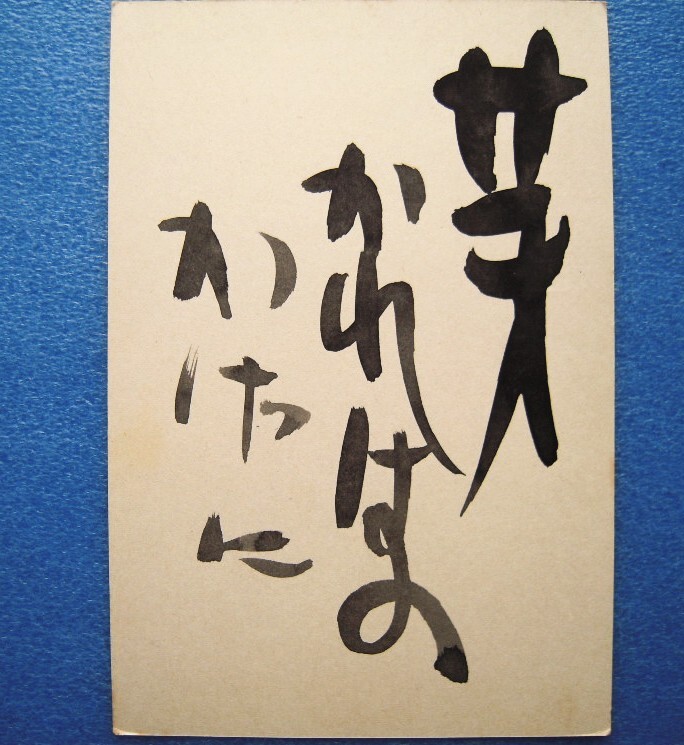 芽
かれはの
かげに